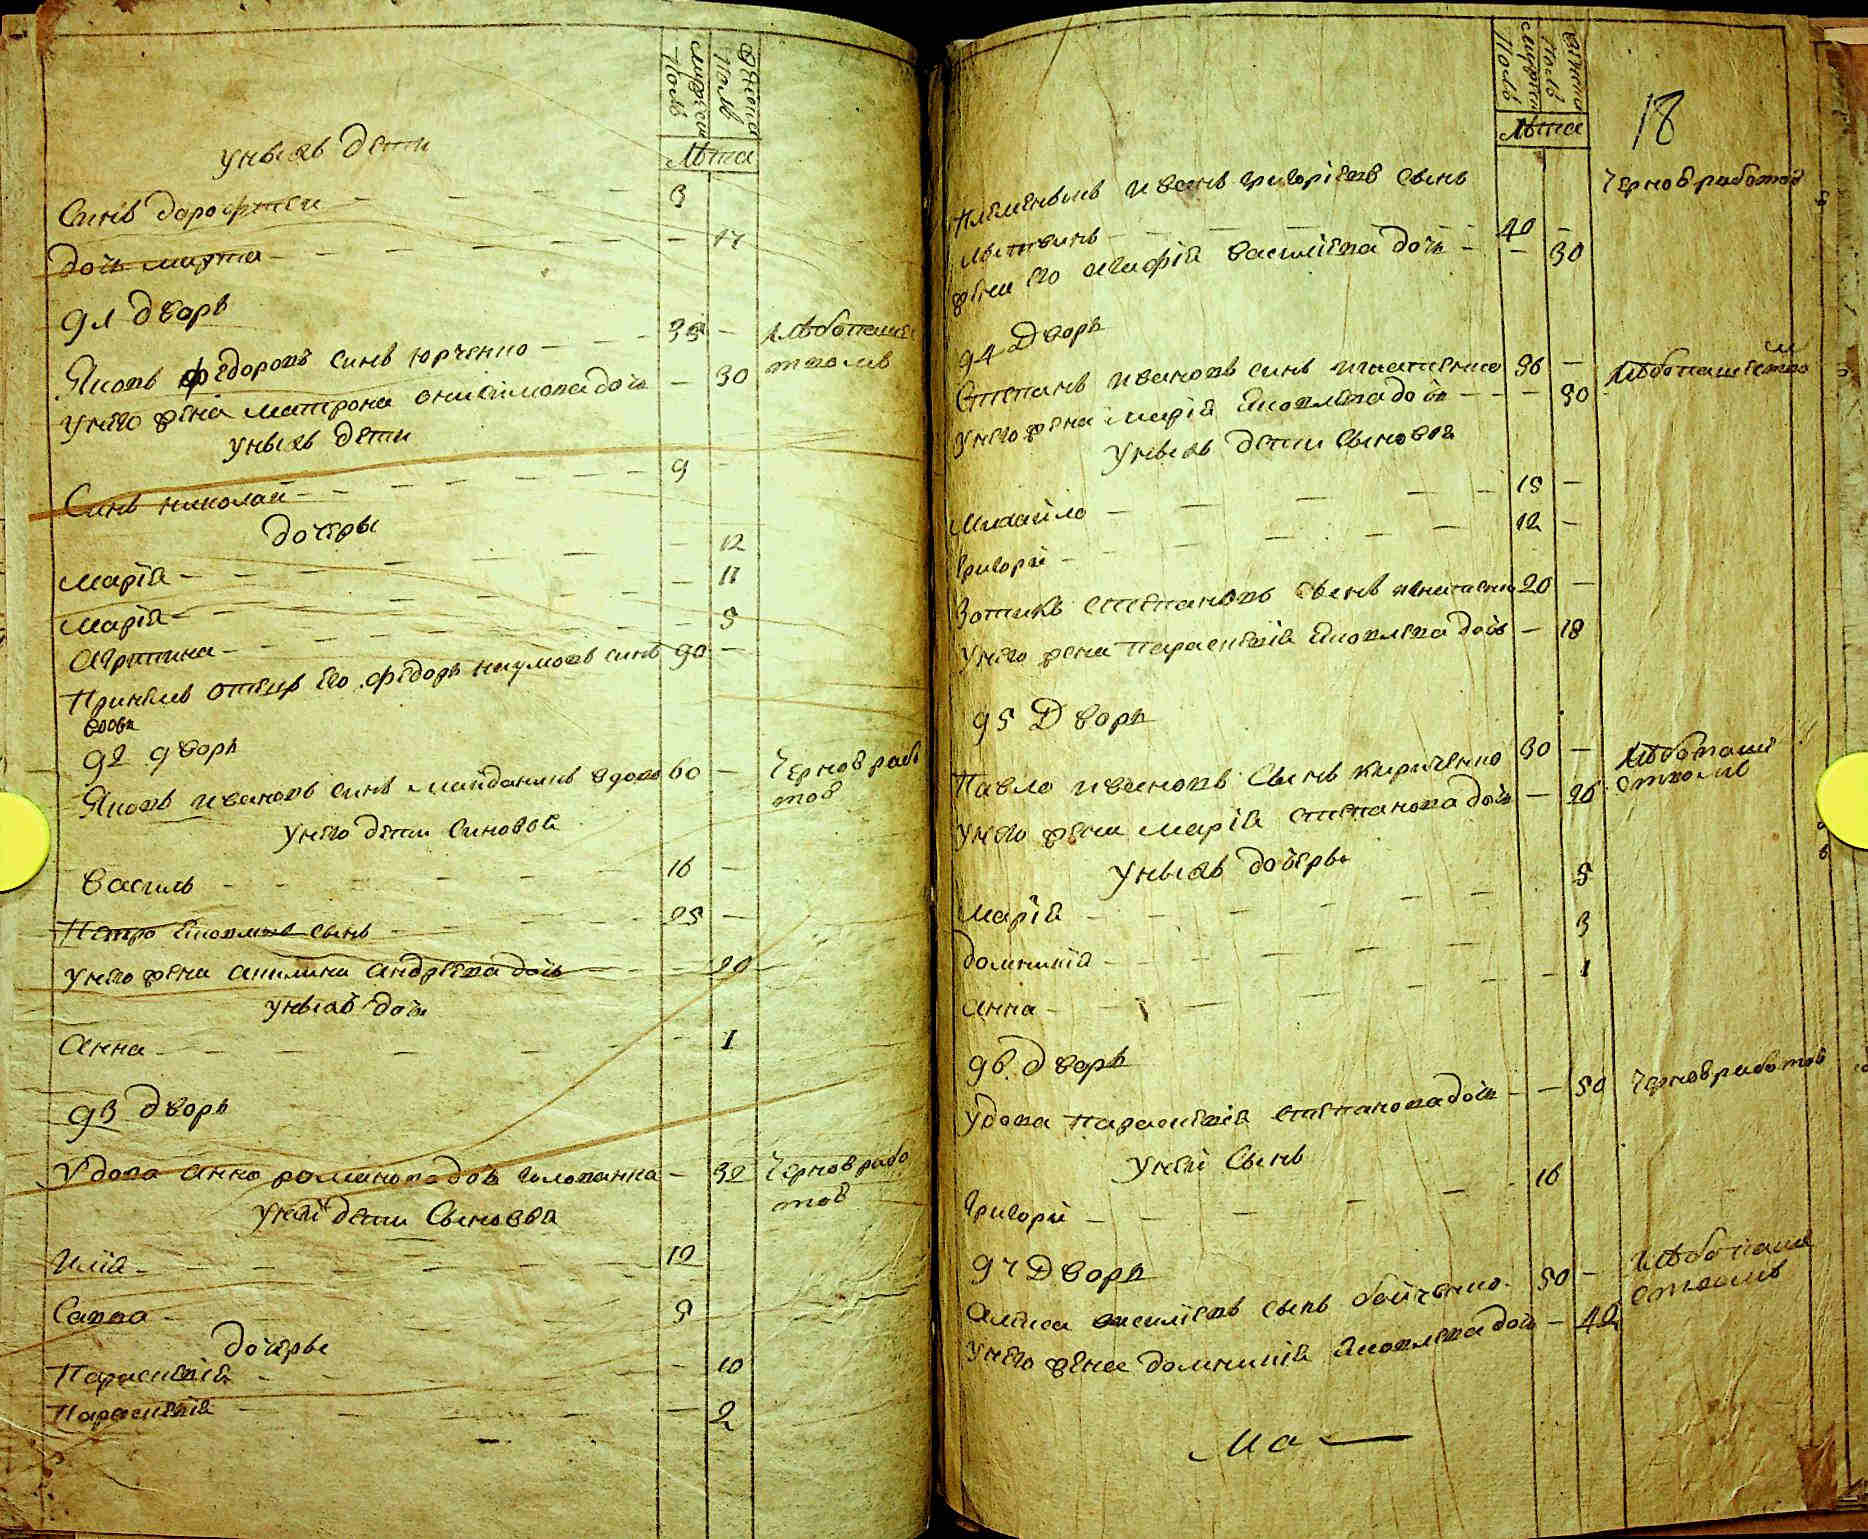 мужеска
Полъ
Женска
Полъ
Лѣта
У ныхъ дети
Синъ дорофтей 3
Дочь марта 17
91 дворъ
Яковъ Федоровъ синъ юрченко 35 хлѣбопаше
ством
У него жена матрона онисимова дочь 30
У ныхъ дети
Синъ николай 9
дочеры
Марія 12
Марія 11
Агрипина 5
При немъ отецъ его федоръ наумовъ синъ 90
вдовъ
92 дворъ
Яковъ ивановъ синъ майданикъ вдовъ 60 Черноврабо
тов
У него дети синовя
Василь 16
Петро яковлевъ сынъ 25
У него жена акилина андреева дочь 20
У ныхъ дочь
Анна 1
93 дворъ
Удова анна романова дочь 32 Черноврабо
тов
У ней дети Сыновя
Илія 12
Савва 5
дочеры
Парасковія 10
Парасковія 2
мужеска
Полъ
женска
Полъ
Лѣта
18
Племенъикъ иванъ григоріевъ сынъ Черновработо
литвинъ 40
жена его агафія василіева дочь 30
94 Дворъ
Степанъ ивановъ синъ игнатенко 36 хлѣбопашество
м
У него жена марія яковлева дочь 30
У ныхъ дети сыновя
Михайло 15
Григорій 12
Зотикъ степановъ сынъ игнатенко 20
У него жена парасковія яковлева дочь 18
95 Дворъ
Павло ивановъ сынъ кириченко 30 хлѣбопаше
ством
У него жена марія степанова дочь 26
У ныхъ дочеры
Марія 5
Домникія 3
Анна 1
96 дворъ
Удова парасковія степанова дочь 50 черновработо
У ней сынъ
Григорій 16
97 Дворъ
Алекса василіевъ сынъ бойченко 50 хлѣбопаше
ством
У него жена домникія яковлева дочь 42